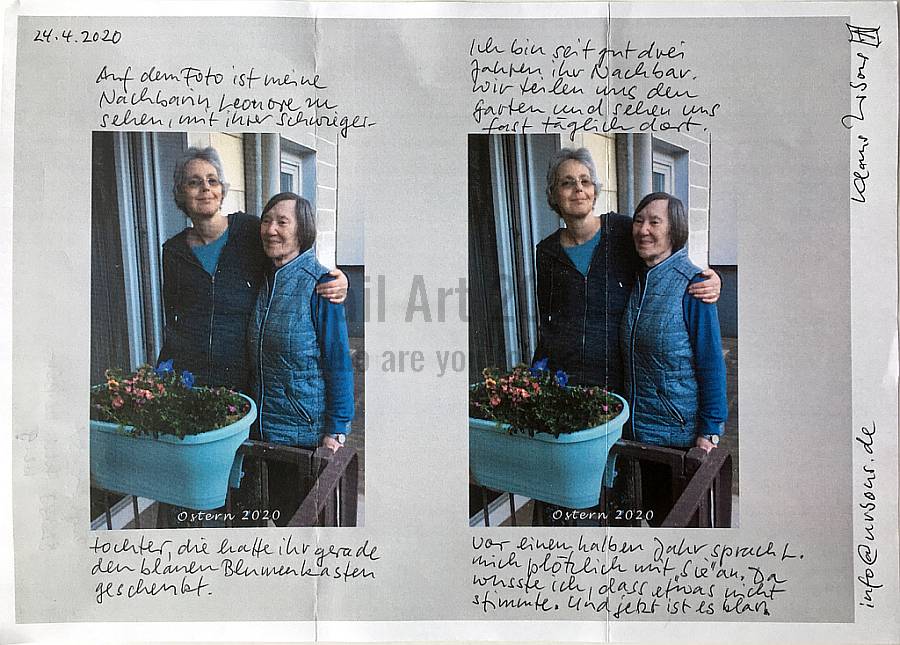 24.4.2020
Auf dem Foto ist meine
Nachbarin Leonore zu
sehen, mit ihrer Schwieger-
Ostern 2020
tochter, die hatte ihr gerade
den blauen Blumenkasten
geschenkt.
Ich bin seit gut drei
Jahren ihr Nachbar.
Wir teilen uns den
Garten und sehen uns
fast täglich dort.
Ostern 2020
Vor einem halben Jahr sprach L.
mich plötzlich mit "Sie" an. Da
wusste ich, dass etwas nicht
stimmte. Und jetzt ist es klar.
Klaus
info@ursons.de
ail Art 2
are you